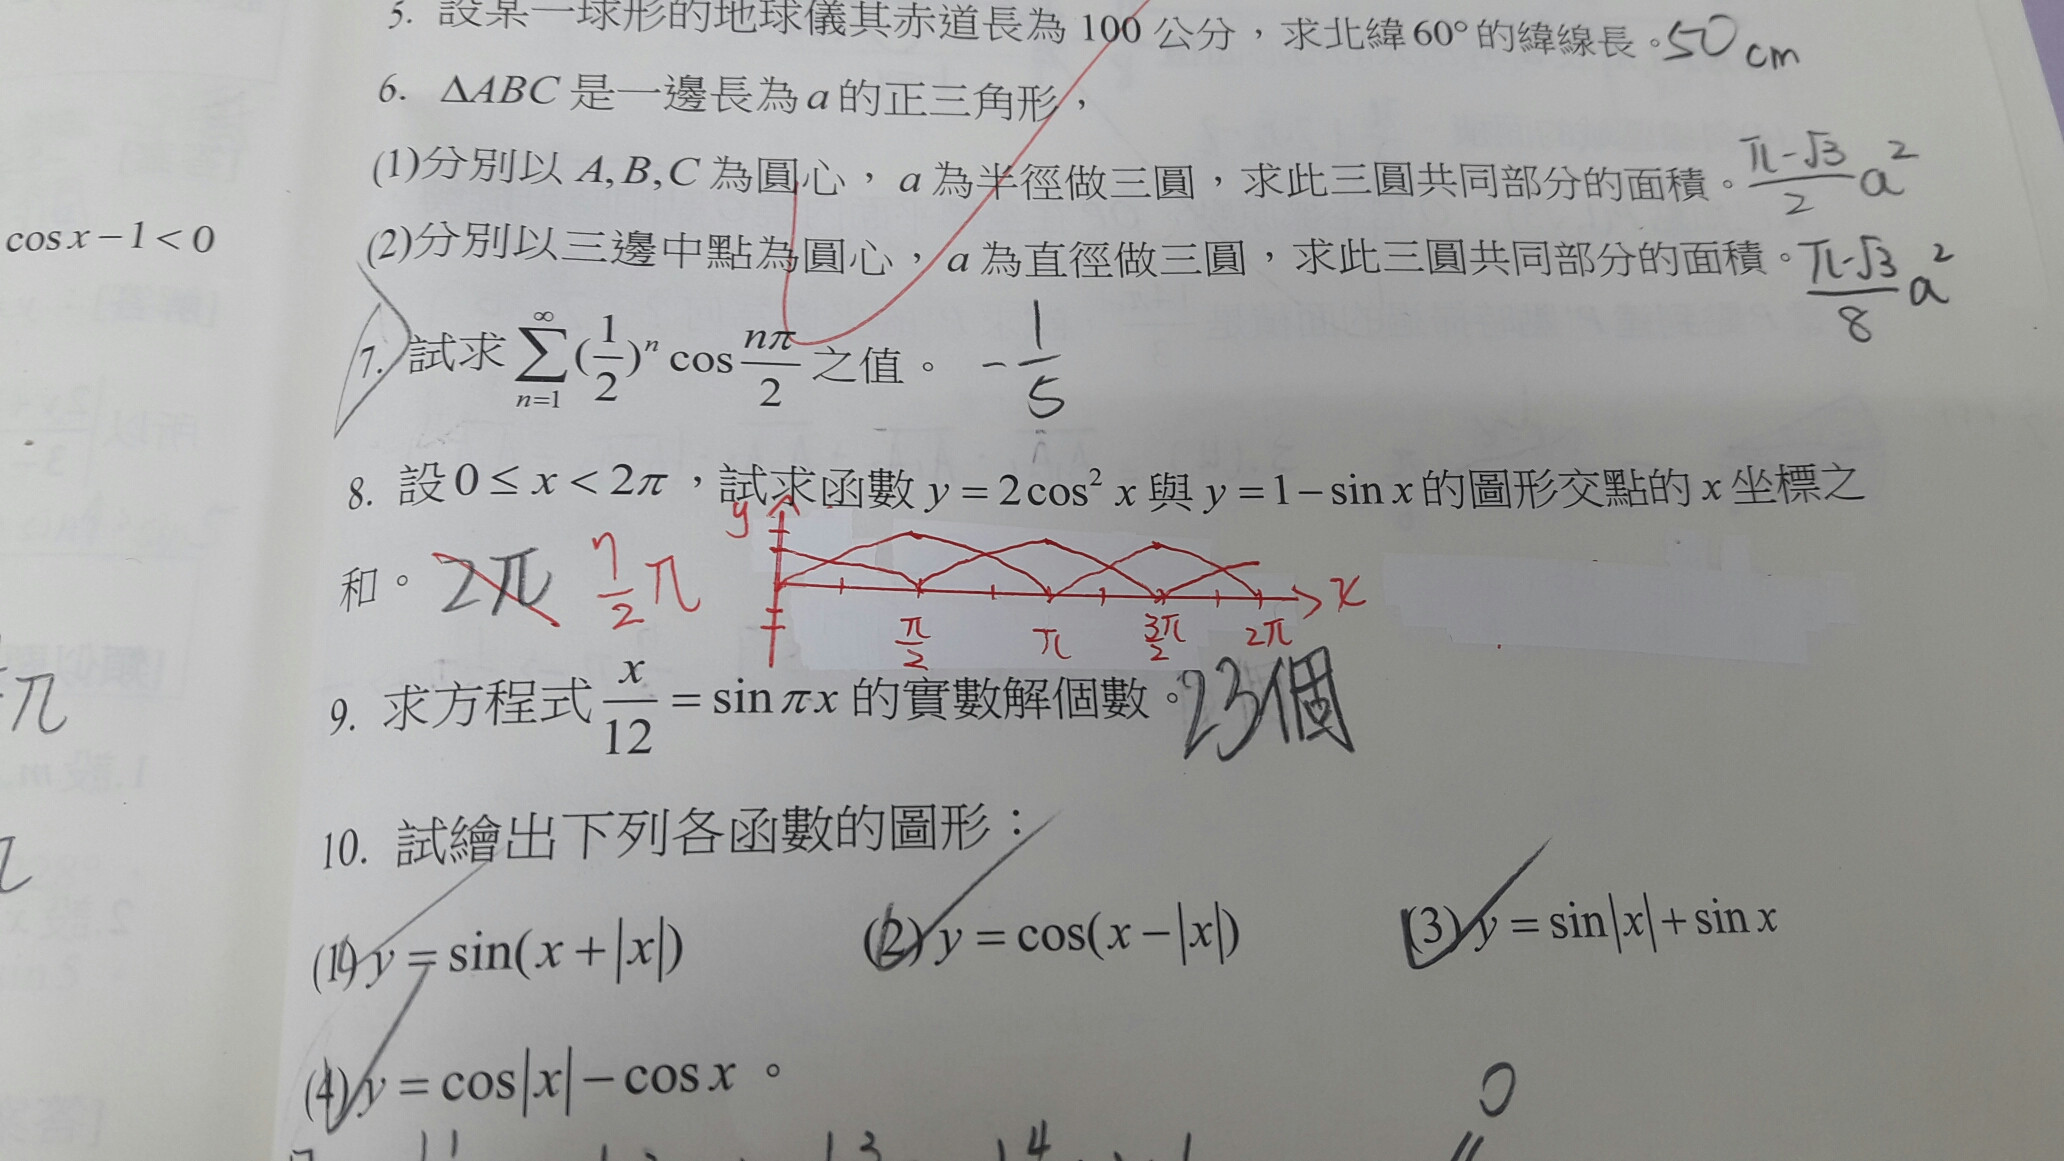 5. 設某一球形的地球儀其赤道長為 100 公分，求北緯 60° 的緯線長。50 cm
6. ΔABC 是一邊長為 a 的正三角形，
(1)分別以 A, B, C 為圓心，a 為半徑做三圓，求此三圓共同部分的面積。\frac{π-√3}{2}a²
cos x − 1 < 0
(2)分別以三邊中點為圓心，a 為直徑做三圓，求此三圓共同部分的面積。\frac{π-√3}{8}a²
7. 試求 \sum_{n=1}^{∞}(\frac{1}{2})^n cos\frac{nπ}{2} 之值。 -\frac{1}{5}
8. 設 0 ≤ x < 2π，試求函數 y = 2cos² x 與 y = 1 − sin x 的圖形交點的 x 坐標之
和。 2π \frac{7}{2}π
y x
\frac{π}{2} π \frac{3}{2}π 2π
9. 求方程式 \frac{x}{12} = sin πx 的實數解個數。23個
10. 試繪出下列各函數的圖形：
(1) y = sin(x + |x|) (2) y = cos(x − |x|) (3) y = sin|x| + sin x
(4) y = cos|x| − cos x。
π
0